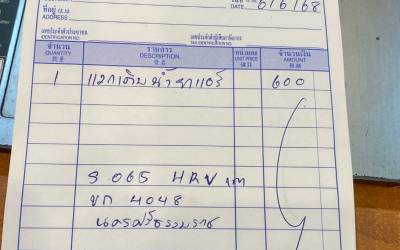 ที่อยู่
ADDRESS
วันที่
DATE 6/6/68
เลขประจำตัวประชาชน
IDENTIFICATION NO.
เลขประจำตัวผู้เสียภาษีอากร
TAX IDENTIFICATION NO.
จำนวน รายการ หน่วยละ จำนวนเงิน
QUANTITY DESCRIPTION UNIT PRICE AMOUNT
1 แวกเติมน้ำยาแอร์ 600
S 065 HRV
ขก 4048
นครศรีธรรมราช